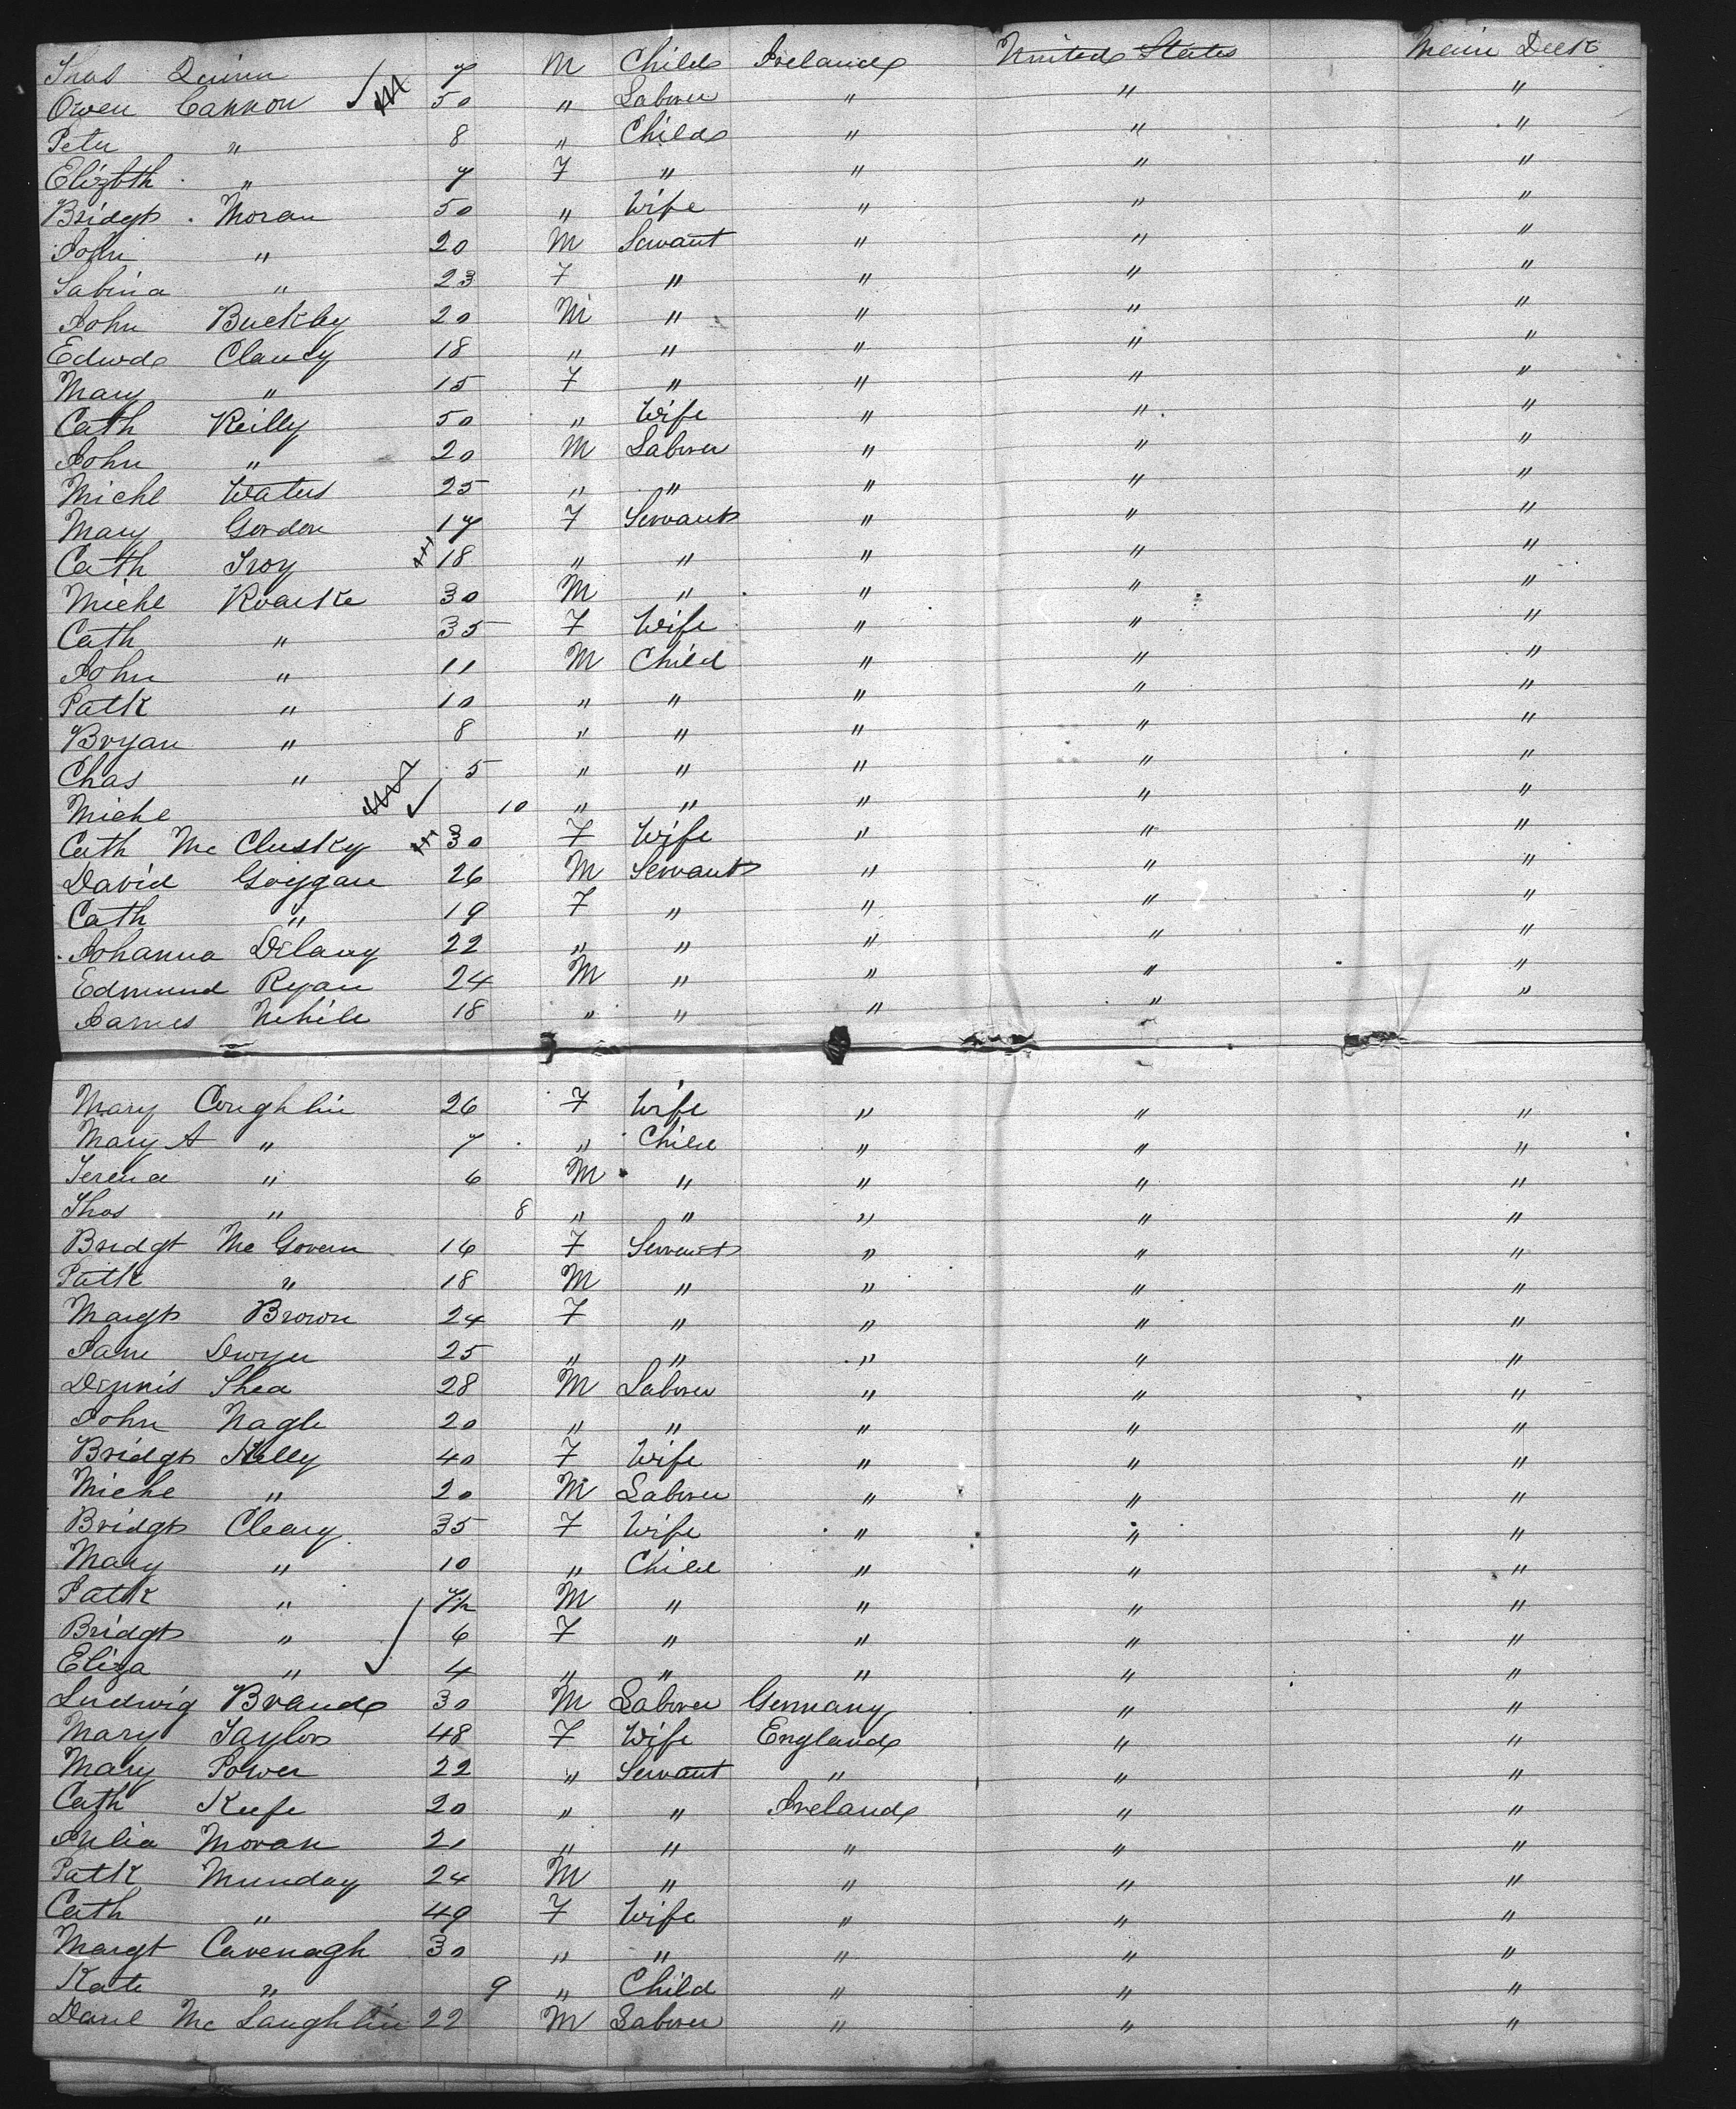 Thos Quinn 7 M Child Ireland United States Main Deck
Owen Cannon 50 " Laborer " " "
Peter " 8 " Child " " "
Elizbth " 7 F " " " "
Bridgt Moran 50 " Wife " " "
John " 20 M Servant " " "
Sabina " 23 F " " " "
John Buckley 20 M " " " "
Edwd Clancy 18 " " " " "
Mary " 15 F " " " "
Cath Reilly 50 " Wife " " "
John " 20 M Laborer " " "
Michl Waters 25 " " " " "
Mary Gordon 17 F Servant " " "
Cath Troy 18 " " " " "
Michl Roarke 30 M " " " "
Cath " 35 F Wife " " "
John " 11 M Child " " "
Patk " 10 " " " " "
Bryan " 8 " " " " "
Chas " 5 " " " " "
Michl 10 " " " " "
Cath Mc Clusky 30 F Wife " " "
David 26 M Servant " " "
Cath " 19 F " " " "
Johanna Delany 22 " " " " "
Edmund Ryan 24 M " " " "
James Nehile 18 " " " "
Mary Coughlin 26 F Wife " " "
Mary A " 7 " Child " " "
Terena " 6 M " " " "
Thos " 8 " " " " "
Bridgt Mc Govern 16 F Servant " " "
Patk " 18 M " " " "
Margt Brown 24 F " " " "
Jane Dwyer 25 " " " " "
Dennis Shea 28 M Laborer " " "
John Nagle 20 " " " " "
Bridgt Kelly 40 F Wife " " "
Michl " 20 M Laborer " " "
Bridgt Cleary 35 F Wife " " "
Mary " 10 " Child " " "
Patk " M " " " "
Bridgt " 6 F " " " "
Eliza " 4 " " " " "
Ludwig Brand 30 M Laborer Germany " "
Mary Taylor 48 F Wife England " "
Mary Power 22 " Servant " " "
Cath Keefe 20 " " Ireland " "
Julia Moran 21 " " " " "
Patk Munday 24 M " " " "
Cath " 49 F Wife " " "
Margt Cavenagh 30 " " " " "
Kate " 9 " Child " " "
Danl Mc Laughlin 22 M Laborer " " "